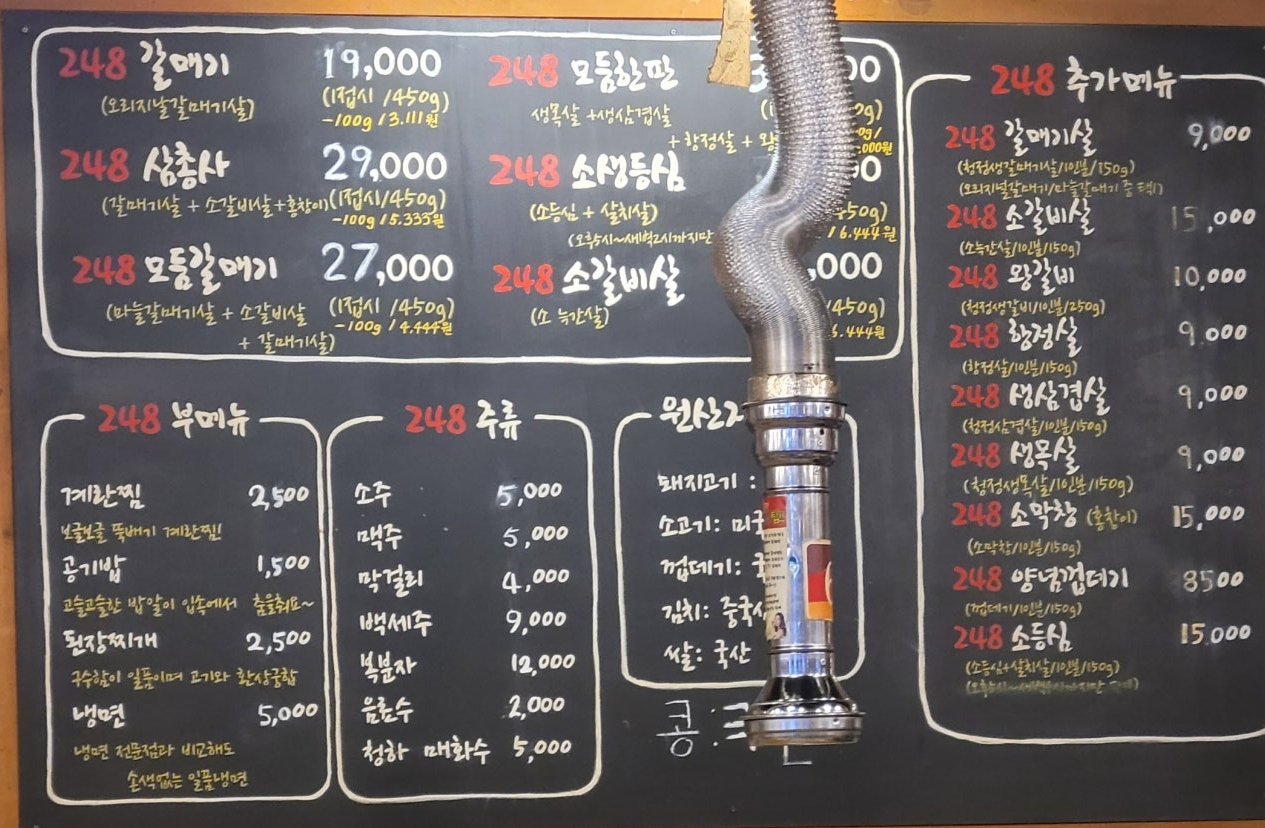 248 갈매기 19,000
(오리지날갈매기살) (1접시/450g)
-100g/3.111원
248 삼총사 29,000
(갈매기살 + 소갈비살+홍창이) (1접시/450g)
-100g/5.333원
248 모듬갈매기 27,000
(마늘갈매기살 + 소갈비살 (1접시/450g)
-100g/4.444원
+ 갈매기살)
248 모듬한판
생목살 +생삼겹살
+ 항정살 +
248 소생등심
(소등심 + 살치살)
(오후5시~새벽2시까지만
/6.444원
248 소갈비살 ,000
(소 늑간살) 450g)
6.444원
248 추가메뉴
248 갈매기살 9,000
(청정생갈매기살/1인분/150g)
(오리지널갈매기/마늘갈매기 중 택1)
248 소갈비살 15,000
(소늑간살/1인분/150g)
248 왕갈비 10,000
(청정생갈비/1인분/250g)
248 항정살 9.000
(항정살/1인분/150g)
248 생삼겹살 9,000
(청정삼겹살/1인분/150g)
248 생목살 9,000
(청정생목살/1인분/150g)
248 소막창 (홍창이) 15,000
(소막창/1인분/150g)
248 양념껍데기 8500
(껍데기/1인분/150g)
248 소등심 15.000
(소등심+살치살/1인분/150g)
248 부메뉴
계란찜 2,500
보글보글 뚝배기 계란찜!
공기밥 1,500
고슬고슬한 밥알이 입속에서 춤을춰요~
된장찌개 2,500
구수함이 일품이며 고기와 환상궁합
냉면 5,000
냉면 전문점과 비교해도
손색없는 일품냉면
248 주류
소주 5,000
맥주 5,000
막걸리 4,000
백세주 9,000
복분자 12,000
음료수 2,000
청하 매화수 5,000
원산
돼지고기 :
소고기: 미국
껍데기:
김치: 중국
쌀: 국산
콩: